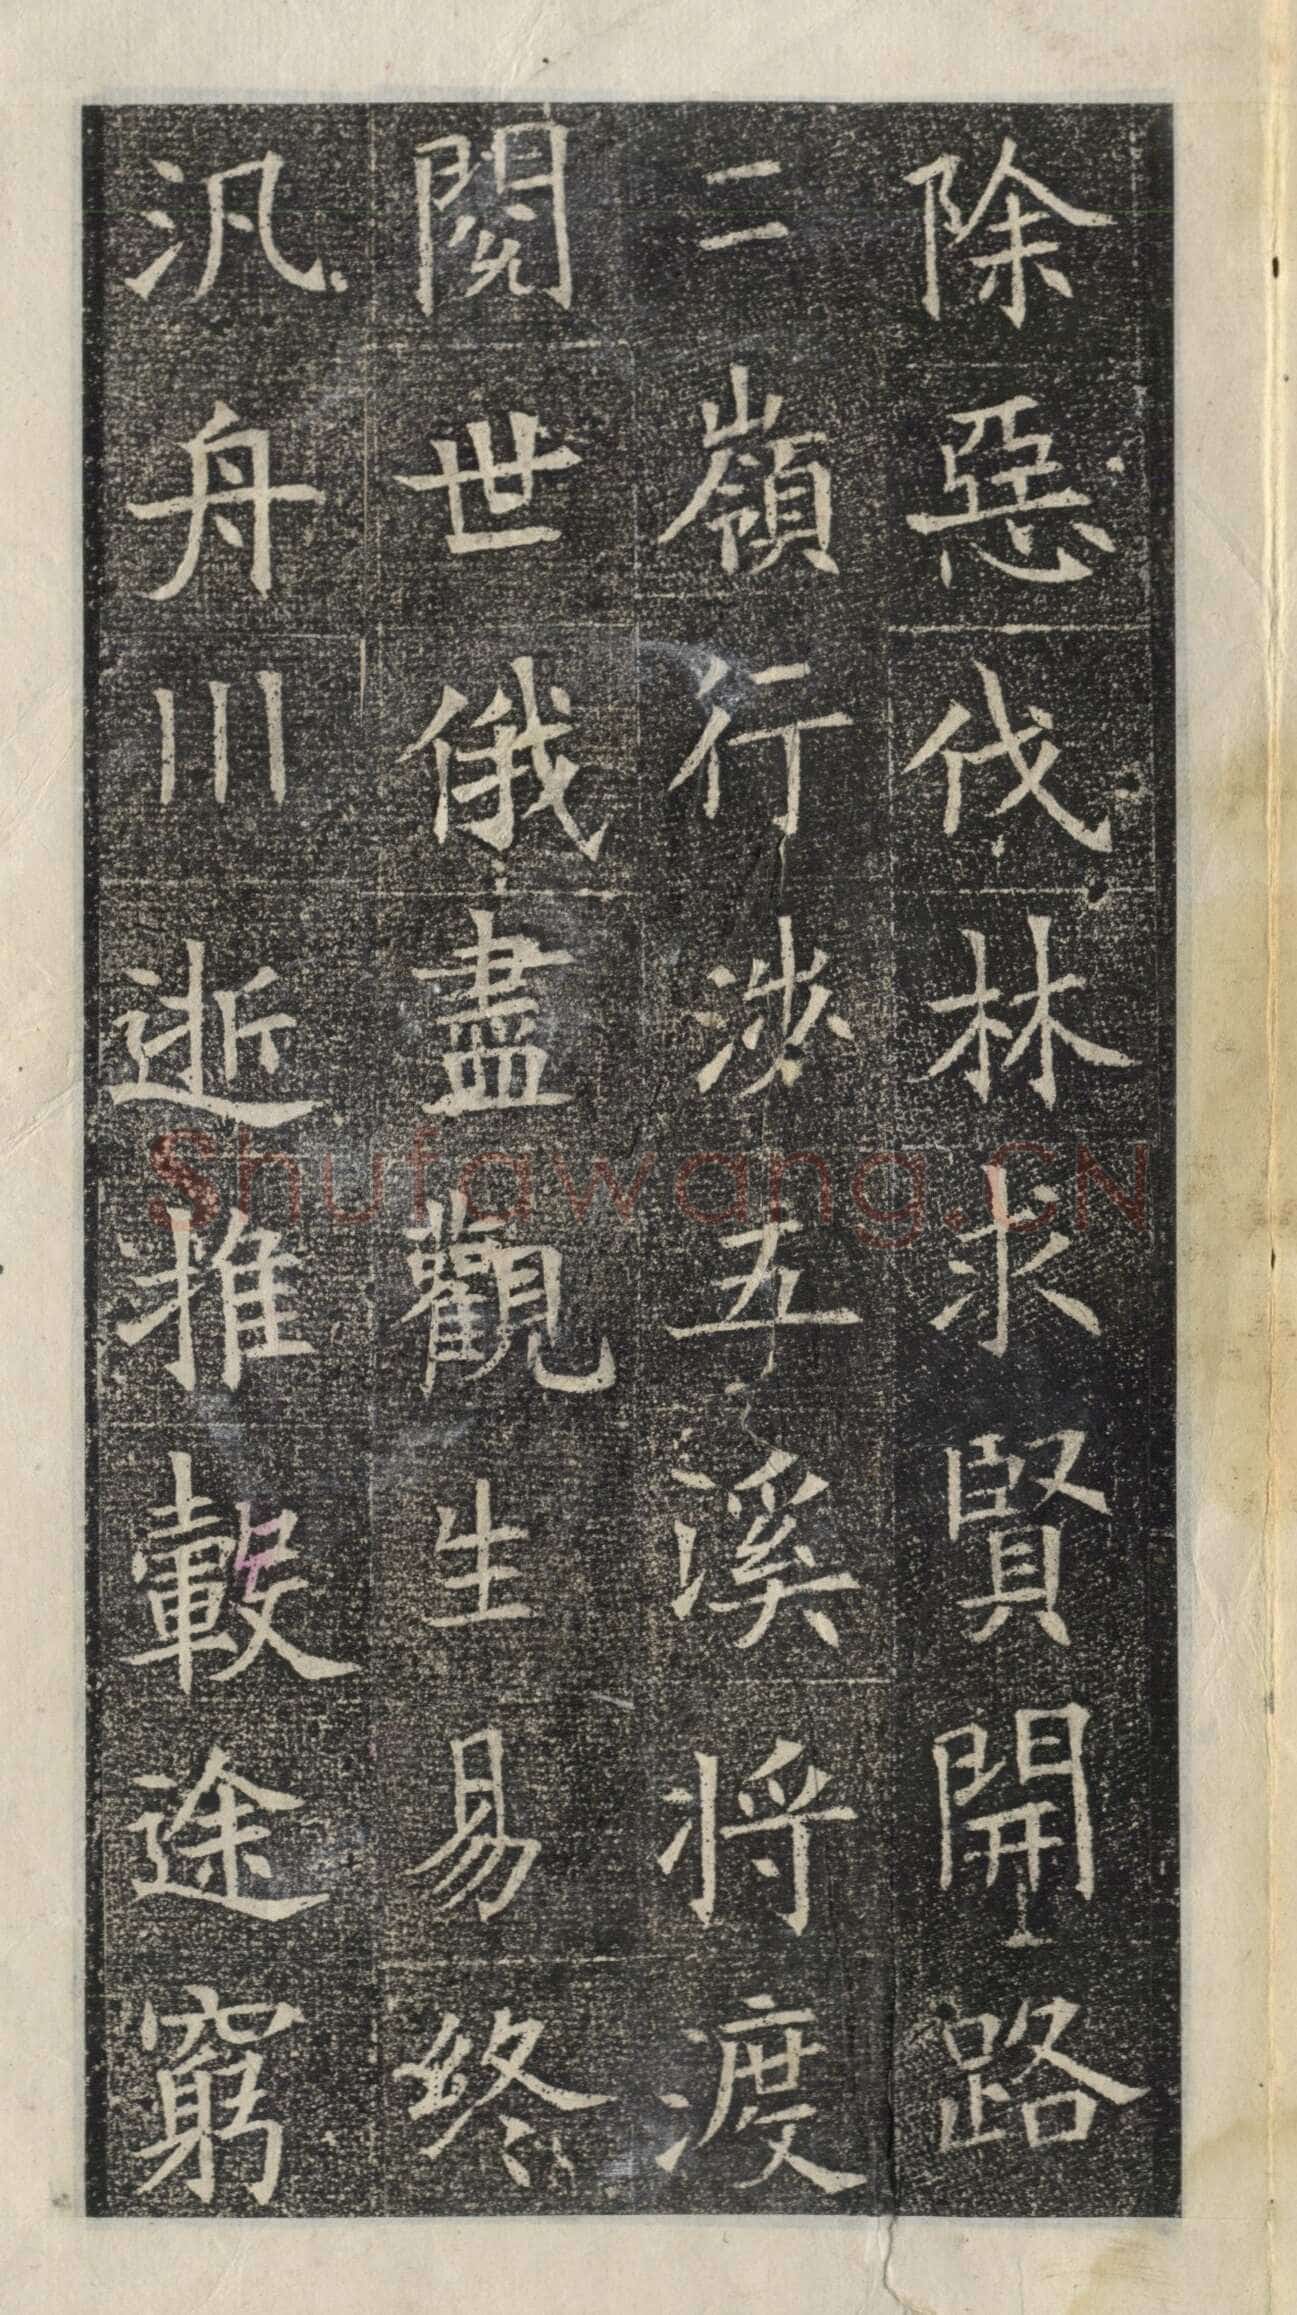 除惡伐林求賢開路
二嶺行涉五溪將渡
閱世俄盡觀生易終
汎舟川逝推轂途窮
Shufawang.CN